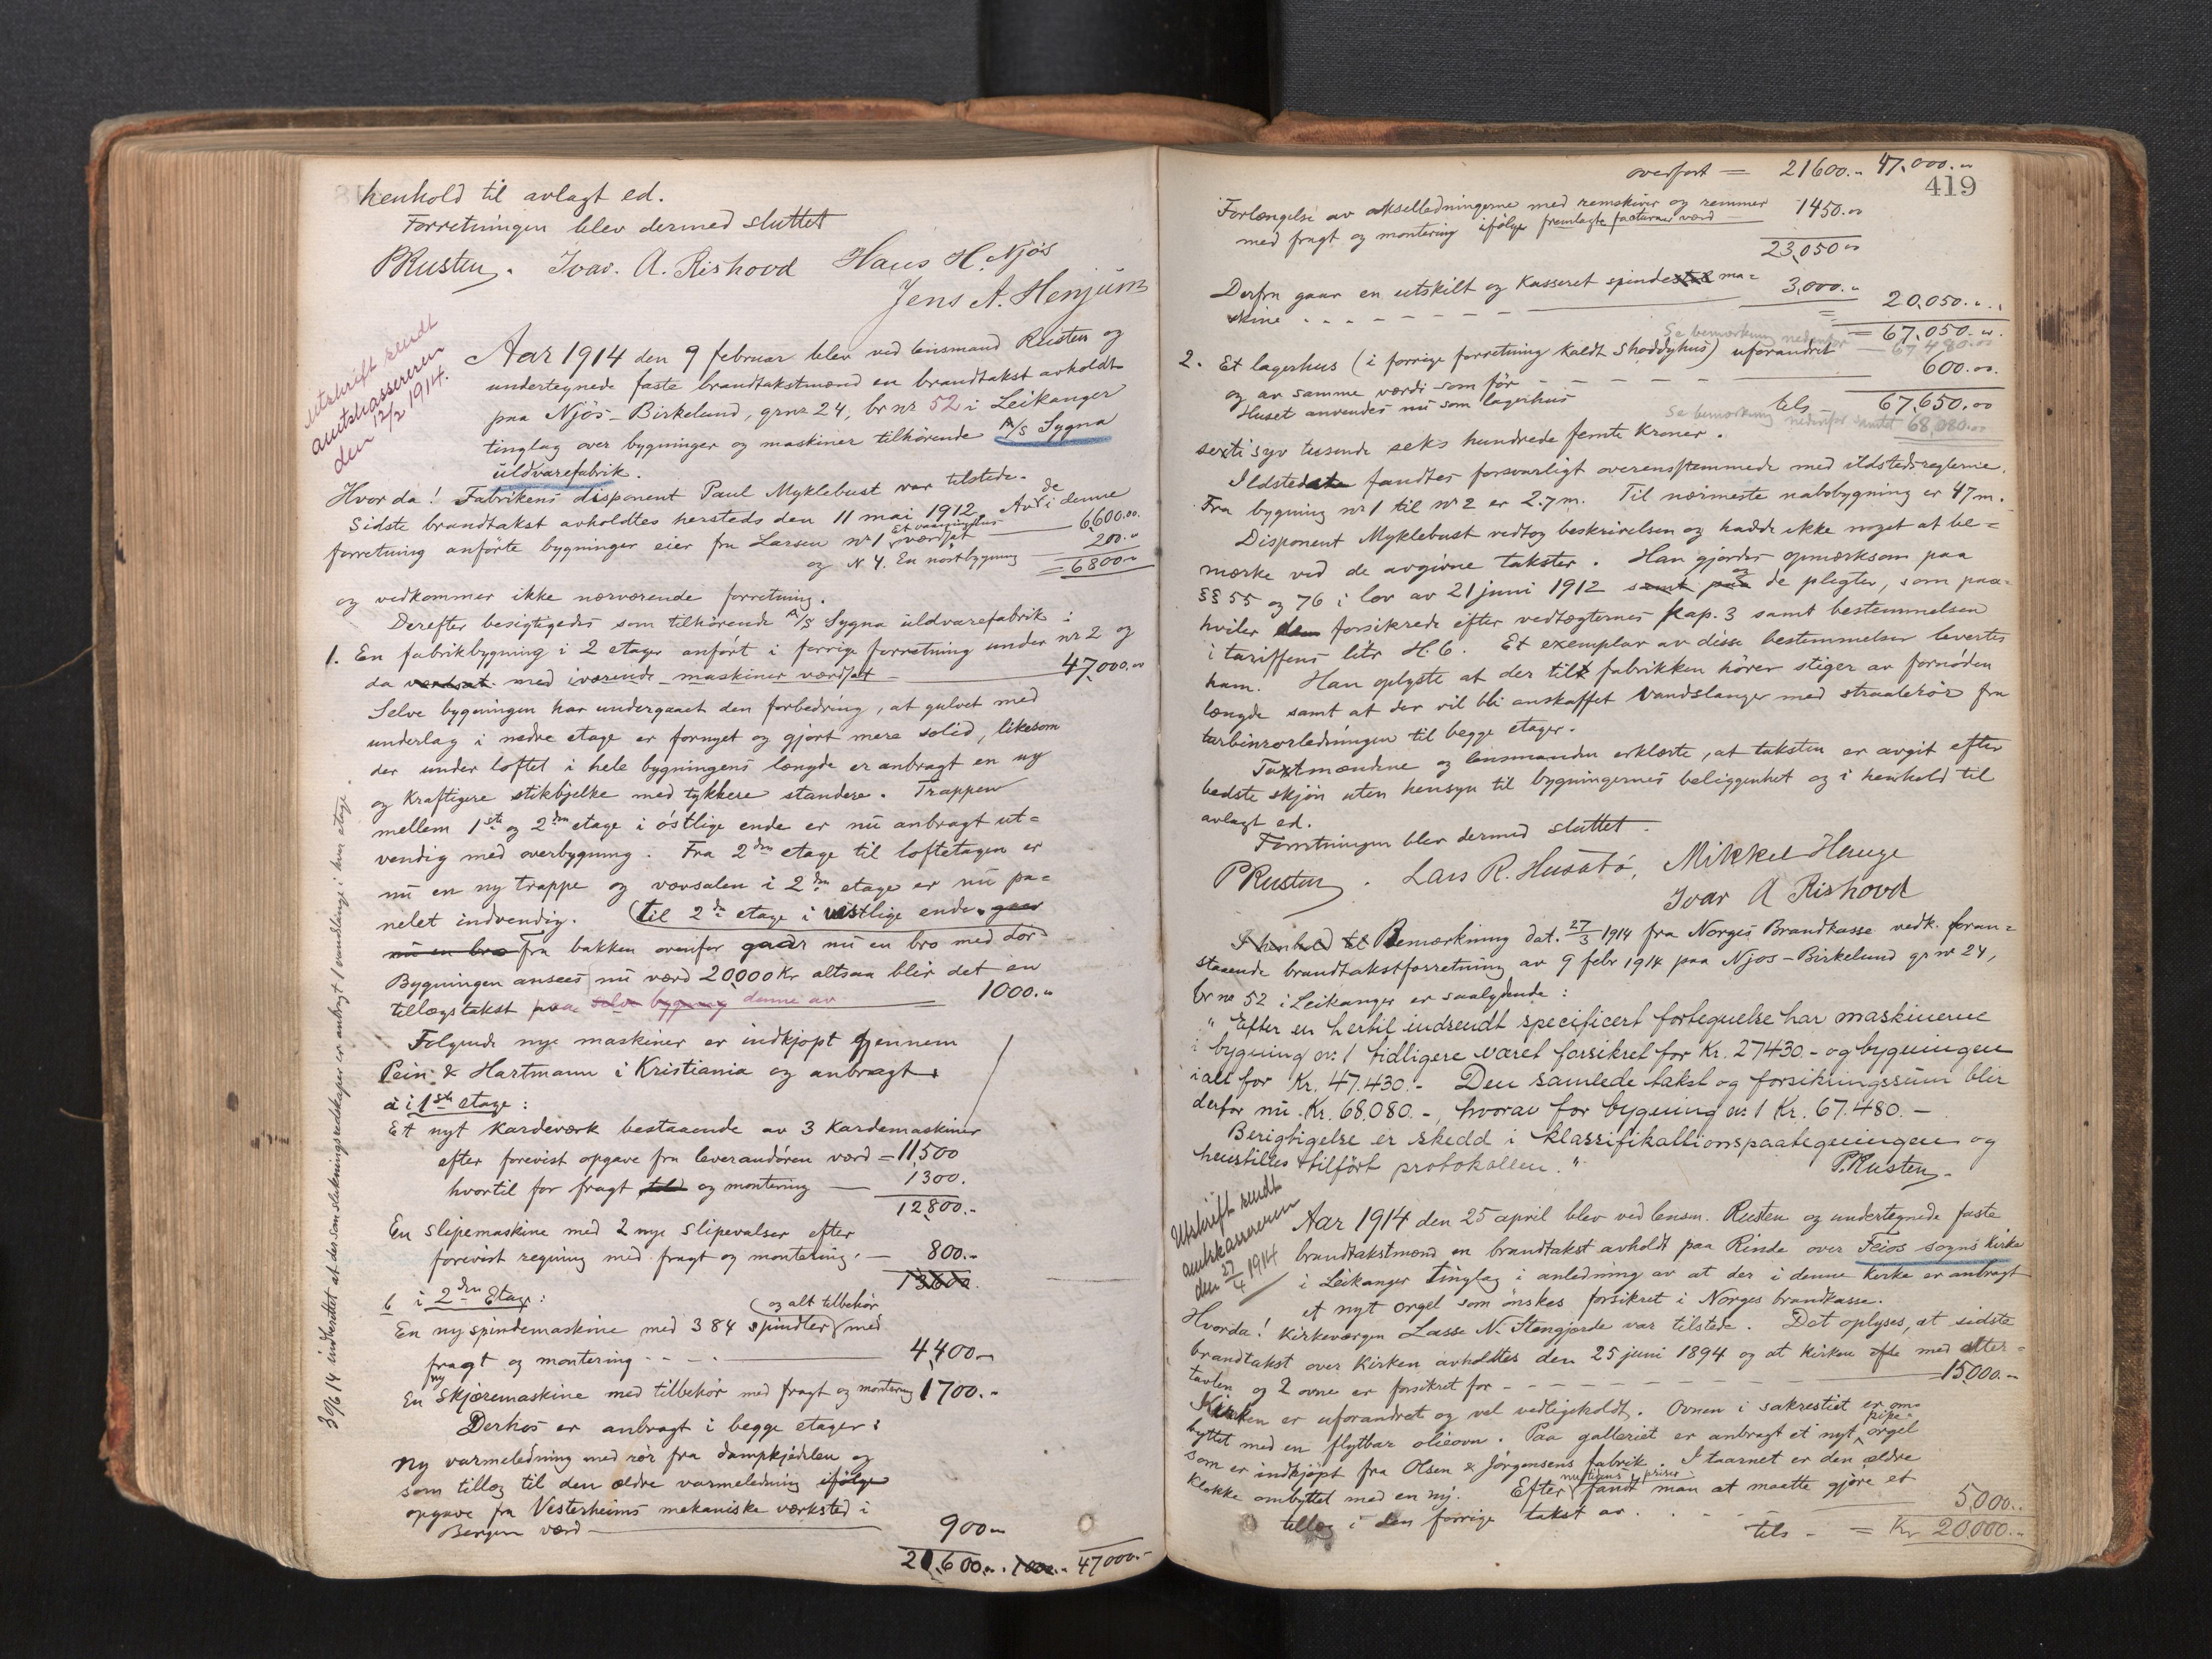 henhold til avlagt ed.
Forretningen blev dermed sluttet
PRusten. Ivar. A. Rishovd Hans H. Njøs
Jens A. Henjum
Utskrift sendt
amtskassereren
den 12/2 1914.
Aar 1914 den 9 februar blev ved lensmand Rusten og
undertegnede faste brandtakstmænd en brandtakst avholdt
paa Njøs-Birkelund, grnr 24, br nr 52 i Leikanger
tinglag over bygninger og maskiner tilhørende A/S Sygna
uldvarefabrik.
Hvor da! Fabrikens disponent Paul Myklebust var tilstede.
Sidste brandtakst avholdtes hersteds den 11 mai 1912. Av de i denne
forretning anførte bygninger eier fru Larsen nr 1 Et vaaningshus værdsat 6600.00
og N 4. En nøstbygning 200."
= 6800."
og vedkommer ikke nærværende forretning.
Derefter besigtigedes som tilhørende A/S Sygna uldvarefabrik:
1. En fabrikbygning i 2 etager anført i forrige forretning under nr 2 og
da værdsat med iværende maskiner værdsat 47,000.00
Selve bygningen har undergaaet den forbedring, at gulvet med
underlag i nedre etage er fornyet og gjort mere solid, likesom
der under loftet i hele bygningens længde er anbragt en ny
og kraftigere stikbjelke med tykkere standere. Trappen
mellem 1ste og 2den etage i østlige ende er nu anbragt ut=
vendig med overbygning. Fra 2den etage til loftetagen er
nu en ny trappe og vævsalen i 2den etage er nu pa=
nelet indvendig. (til 2de etage i vestlige ende. gaar
nu en bro fra bakken ovenfor gaar nu en bro med dør
Bygningen ansees nu værd 20,000 Kr altsaa blir det en
tillægstakst paa selve bygning denne av 1000."
Følgende nye maskiner er indkjøpt gjennem
Pein & Hartmann i Kristiania og anbragt
a i 1ste etage:
Et nyt kardeværk bestaaende av 3 Kardemaskiner
efter forevist opgave fra leverandøren værd = 11,500
hvortil for fragt og montering 1300.
12,800.-
En slipemaskine med 2 nye slipevalser efter
forevist regning med fragt og montering. 800.-
13600.
b i 2den Etage:
En ny spindemaskine med 384 spindler (og alt tilbehør) med
fragt og montering 4,400-
En ny skjæremaskine med tilbehør med fragt og montering 1700.-
Derhos er anbragt i begge etager:
ny varmeledning med rør fra dampkjedelen og
som tillæg til den ældre varmeledning ifølge
opgave fra Vesterheims mekaniske værksted i
Bergen værd 900"
21,600." . 1000." 47000.-
30/6 14 indberettet at der som slukningsredskaper er anbragt 1 vandslange i hver etage.
419
overført = 21600.- 47,000."
Forlængelse av akselledningerne med remskiver og remmer
med fragt og montering ifølge fremlagte facturaer værd 1450.00
23,050 00
Derfra gaar en utskilt og kasseret spinde ma=
skine 3,000." 20,050."
= 67,050."
Se bemerkning nedenfor 67480.00
2. Et lagerhus (i forrige forretning kaldt Shoddyhus) uforandret
og av samme værdi som før 600.00.
Huset anvendes nu som lagerhus tils 67,650.00
Se bemerkning nedenfor samlet 68,080.00
sexti syv tusende seks hundrede femti Kroner.
Ildsted fandtes forsvarligt overensstemmende med ildstedsreglerne.
Fra bygning nr 1 til nr 2 er 2.7 m. Til nærmeste nabobygning er 47 m.
Disponent Myklebust vedtog beskrivelsen og hadde ikke noget at be=
merke ved de avgivne takster. Han gjordes opmerksom paa
§§ 55 og 76 i lov av 21 juni 1912 samt paa og de plegter, som paa=
hviler den forsikrede efter vedtægternes kap. 3 samt bestemmelsen
i tariffens litr H. 6. Et exemplar av disse bestemmelser levertes
ham. Han oplyste at der til fabrikken hører stiger av fornøden
længde samt at der vil bli anskaffet Vandslanger med straalerør fra
turbinrørledningen til begge etager.
Taxtmændene og lensmanden erklærte, at taksten er avgit efter
bedste skjøn uten hensyn til bygningernes beliggenhet og i henhold til
avlagt ed.
Forretningen blev dermed sluttet.
PRusten. Lars R. Husabø, Mikkel Hauge
Ivar A Rishovd
I henhold til Bemærkning dat. 27/3 1914 fra Norges Brandkasse vedk. foran=
staaende brandtakstforretning av 9 febr 1914 paa Njøs-Birkelund gr nr 24,
br nr 52 i Leikanger er saalydende:
"Efter en hertil indsendt specificert fortegnelse har maskinerne
i bygning nr 1 tidligere været forsikret for Kr. 27430.- og bygningen
i alt for Kr. 47.430.- Den samlede takst og forsikringssum blir
derfor nu Kr. 68080.-, hvorav for bygning nr 1 Kr. 67.480.-
Berigtigelse er skedd i klassifikationspaategningen og
henstilles tilført protokollen." P.Rusten.
Utskrift sendt
amtskassereren
den 27/4 1914
Aar 1914 den 25 april blev ved lensm. Rusten og undertegnede faste
brandtakstmænd en brandtakst avholdt paa Rinde over Feios sogns Kirke
i Leikanger Tinglag i anledning av at der i denne Kirke er anbragt
et nyt orgel som ønskes forsikret i Norges brandkasse.
Hvorda! Kirkeværgen Lasse N. Stengjerde var tilstede. Det oplyses, at sidste
brandtakst over Kirken avholdtes den 25 juni 1894 og at Kirken med alter=
tavlen og 2 ovne er forsikret for 15000.-
Kirken er uforandret og vel vedligeholdt. Ovnen i sakrestiet er om=
byttet med en flytbar olieovn. Paa galleriet er anbragt et nyt pipe-orgel
som er indkjøpt fra Olsen & Jørgensens fabrik. I taarnet er den ældre
klokke ombyttet med en ny. Efter nutidens priser fandt man at maatte gjøre et
tillæg i den forrige takst av 5,000..
tils - = Kr 20,000.-